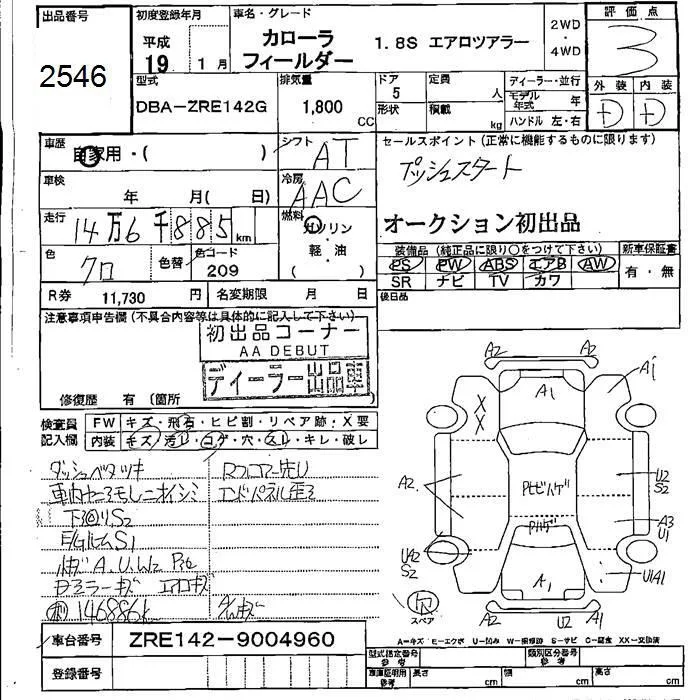 出品番号 初度登録年月 車名・グレード 評価点
2546
平成
19 1月
カローラ
フィールダー
1.8S エアロツアラー
2WD
・
4WD
3
型式
DBA-ZRE142G
排気量
1,800 CC
ドア
5
形状
定員 人
積載 kg
ディーラー・並行
モデル年式 年
ハンドル 左・右
外装 内装
D D
車歴
自家用・( )
シフト
AT
セールスポイント(正常に機能するものに限ります)
プッシュスタート
車検
年 月( 日)
冷房
AAC
走行
14万6千885km
燃料
ガソリン
・
軽・油
( )
オークション初出品
色
クロ
色替
色コード
209
装備品 (純正品に限り○をつけて下さい) 新車保証書
PS PW ABS エアB AW
SR ナビ TV カワ
有・無
R券 11,730円 名変期限 月 日
後日品
注意事項申告欄(不具合内容等は具体的に記入して下さい)
初出品コーナー
AA DEBUT
ディーラー出品車
修復歴 有 (箇所
検査員
記入欄
FW キズ・飛石・ヒビ割・リペア跡・X要
内装 キズ・汚レ・コゲ・穴・スレ・キレ・破レ
ダッシュベタツキ
下回りS2
146886k
A2 A2
A1
A1
X
X
A2
U2
S2
P
A3
U1
UA2
S2
A1
U1A1
スペア
A2 U2 A1
A-キズ E-エクボ U-凹み W-補修跡 S-サビ C-腐食 XX-交換済
車台番号 ZRE142-9004960
登録番号
型式指定番号
参考
類別区分番号
参考
車庫証明用
参考
長さ cm 幅 cm 高さ cm